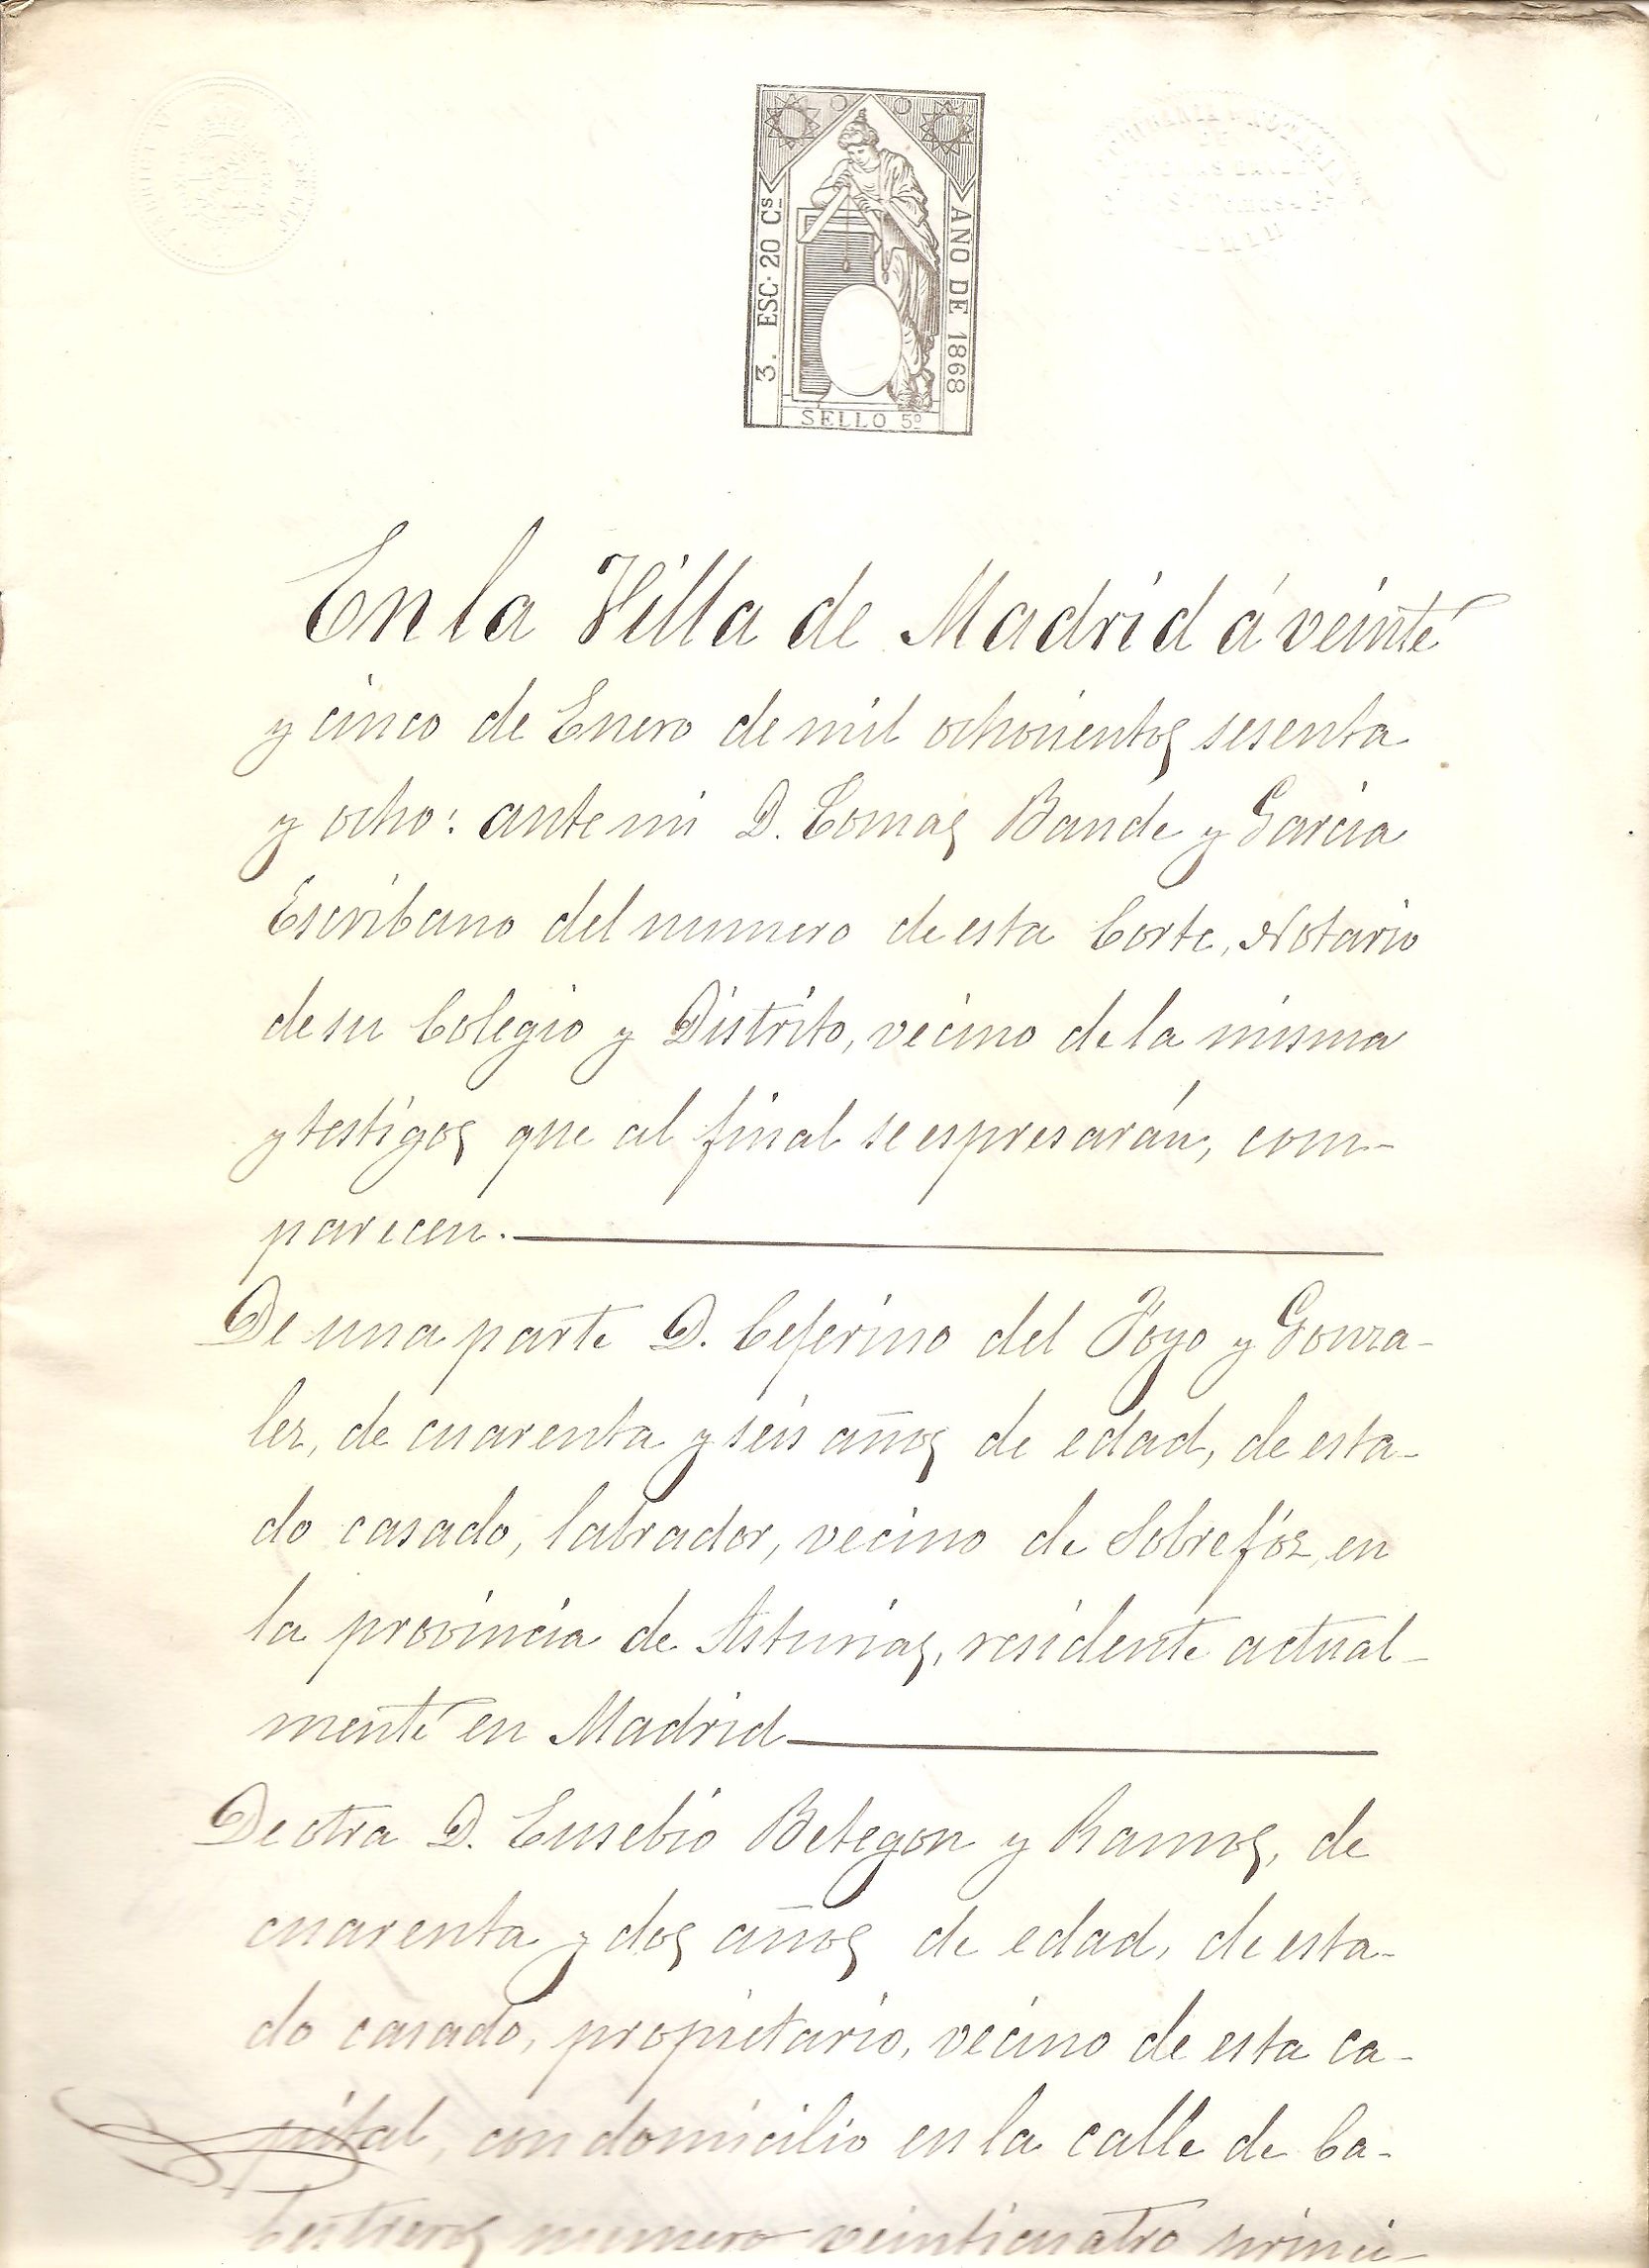 3. ESC. 20 Cs
AÑO DE 1868
SELLO 5º
En la Villa de Madrid á veinte
y cinco de Enero de mil ochocientos sesenta
y ocho: ante mi D. Tomas Bande y Garcia
Escribano del numero de esta Corte, Notario
de su Colegio y Distrito, vecino de la misma
y testigos que al final se espresarán, com-
parecen.
De una parte D. Ceferino del Foyo y Gonza-
lez, de cuarenta y seis años de edad, de esta-
do casado, labrador, vecino de Sobrefóz, en
la provincia de Asturias, residente actual-
mente en Madrid
De otra D. Eusebio Betegon y Ramos, de
cuarenta y dos años de edad, de esta-
do casado, propietario, vecino de esta ca-
pital, con domicilio en la calle de Ca-
bestreros numero veinticuatro princi-